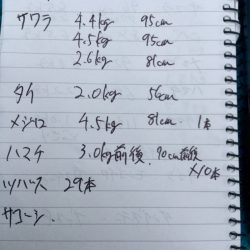 サワラ 4.4kg 95cm
4.5kg 95cm
2.6kg 81cm
タイ 2.0kg 56cm
メジロ 4.5kg 81cm 1本
ハマチ 3.0kg前後、90cm前後
×10本
ツバス 29本
サゴシ